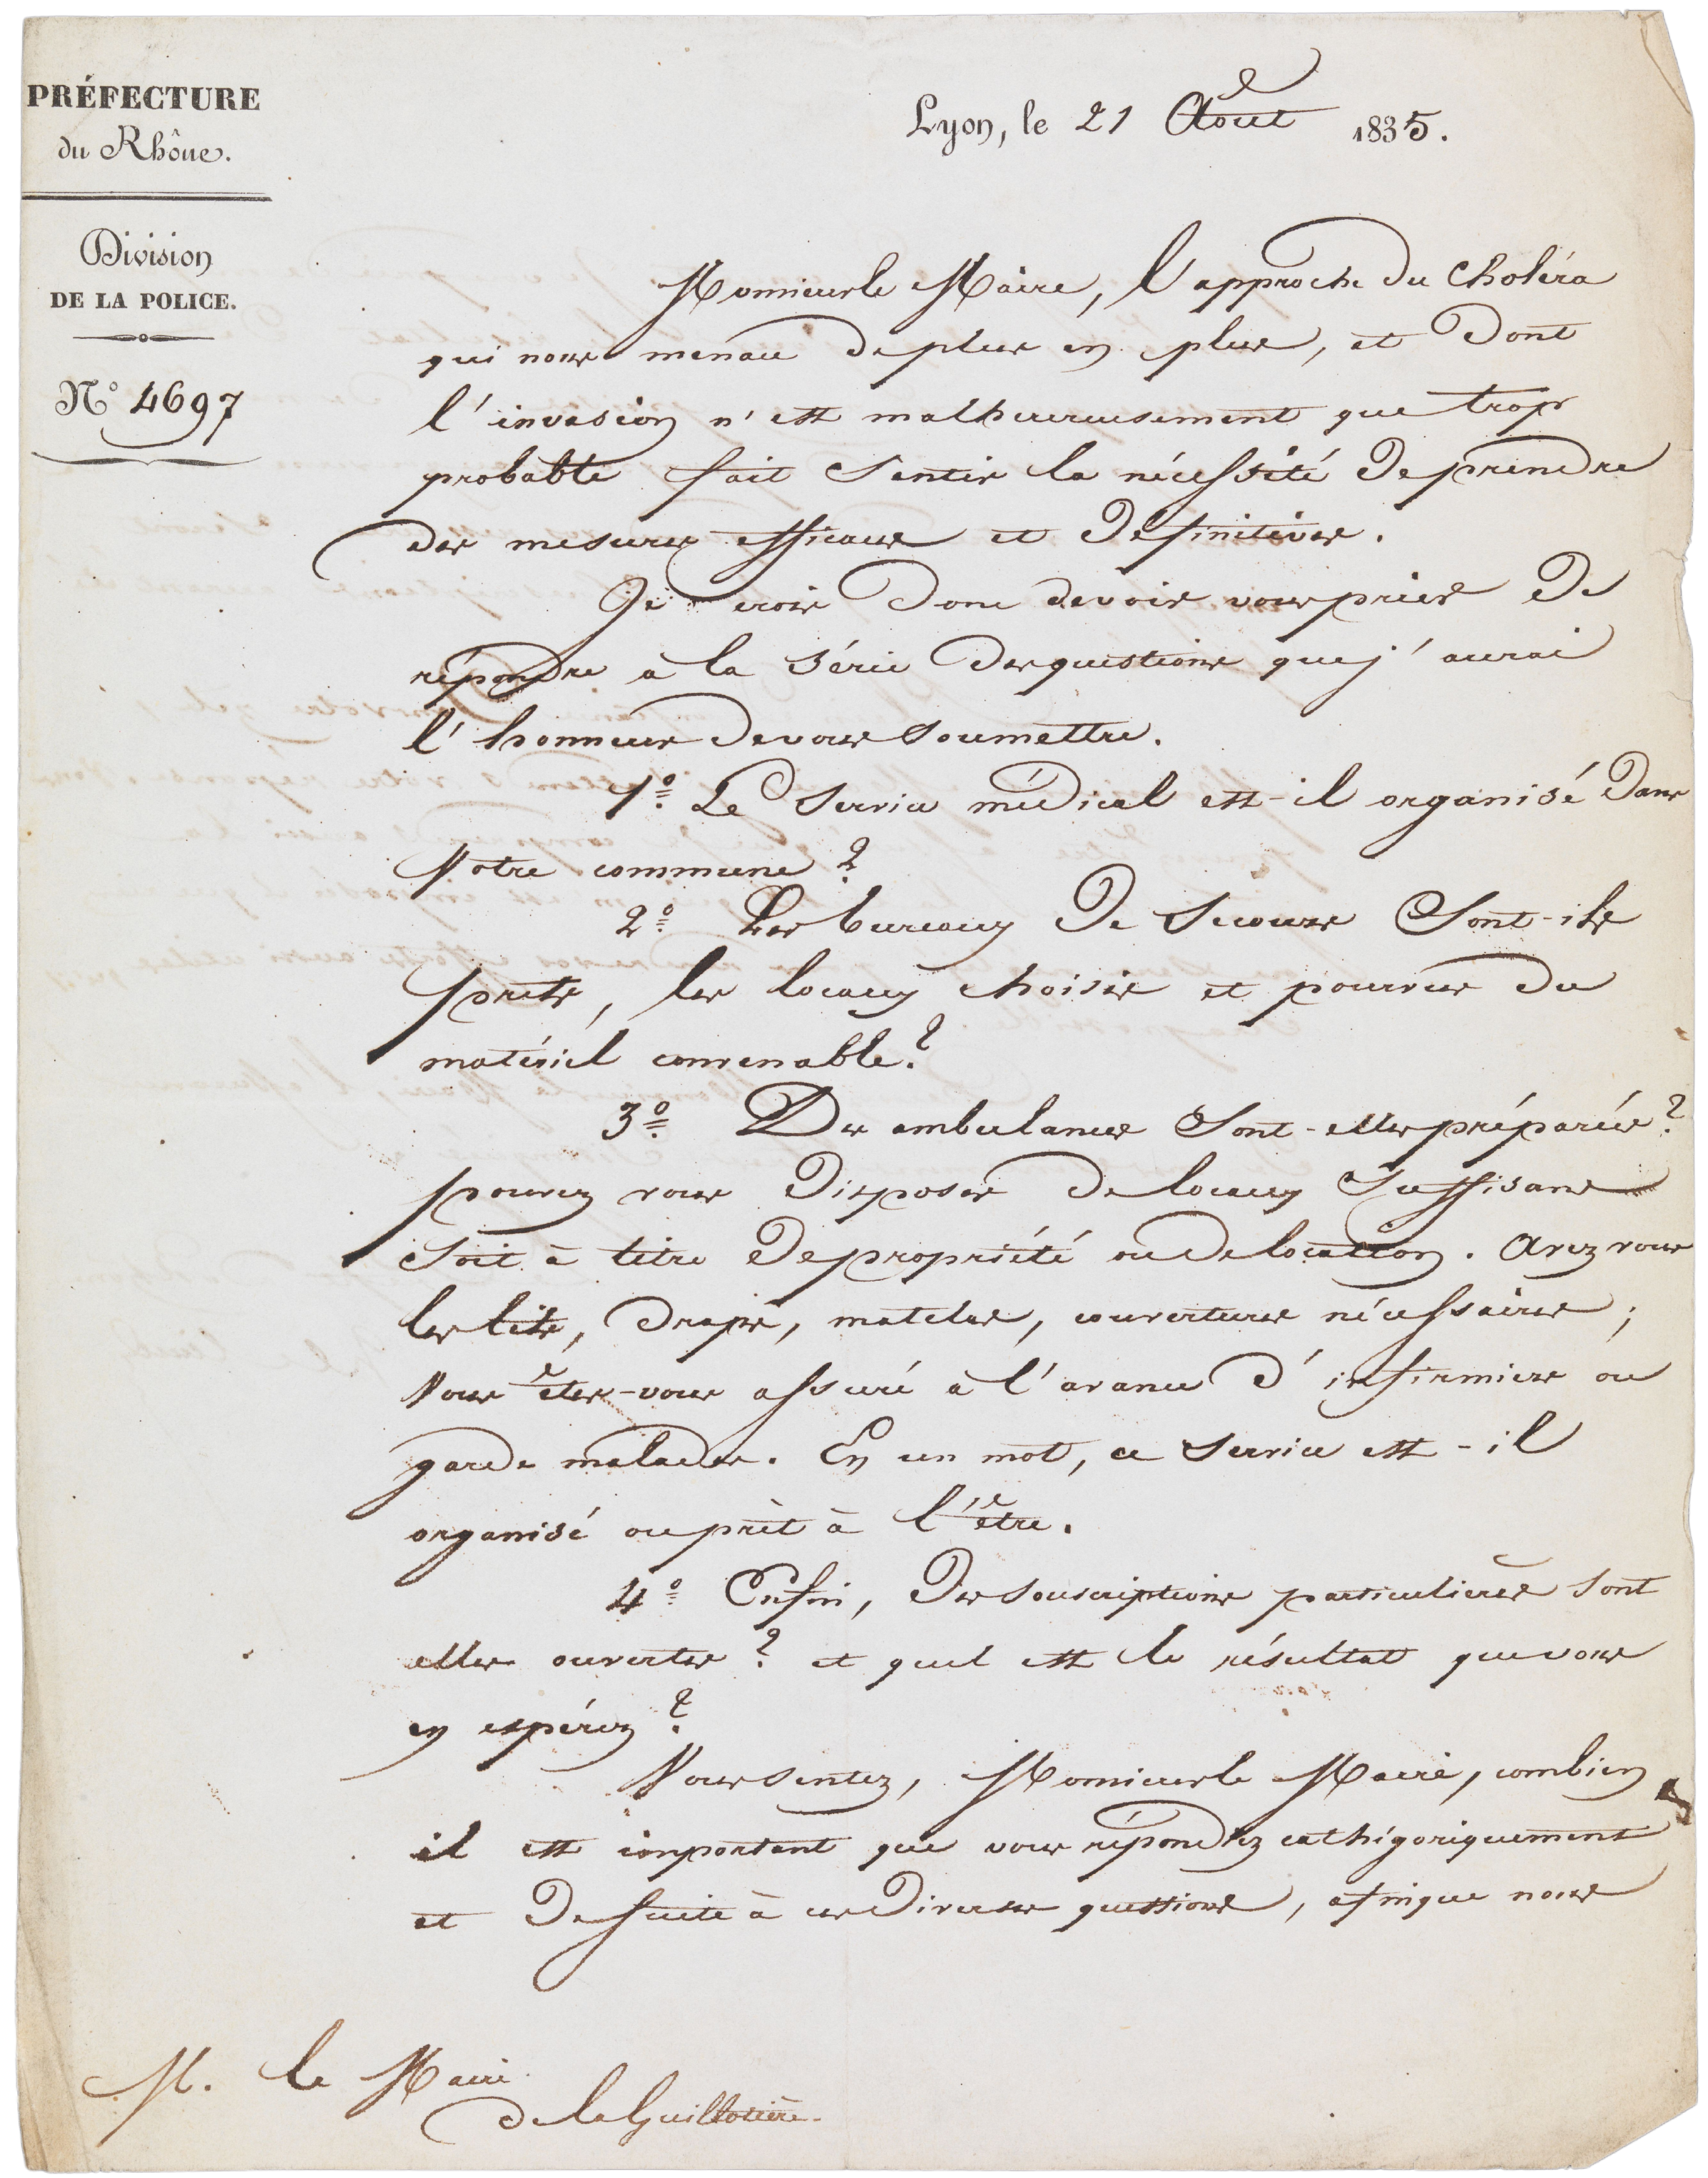 PRÉFECTURE
du Rhône.
Division
DE LA POLICE.
N° 4697
Lyon, le 21 Août 1835.
Monsieur le Maire, l'approche du Choléra
qui nous menace de plus en plus, et dont
l'invasion n'est malheureusement que trop
probable fait sentir la nécessité de prendre
des mesures efficaces et définitives.
Je crois donc devoir vous prier de
répondre à la série des questions que j'aurai
l'honneur de vous soumettre.
1° Le service médical est-il organisé dans
Votre commune ?
2° Les bureaux de secours sont-ils
prets, les locaux choisis et pourvus du
matériel convenable ?
3° Des ambulances sont-elles préparées ?
pouvez vous disposer de locaux suffisans
soit à titre de propriété ou de location. Avez vous
les lits, draps, matelas, couvertures nécessaires ;
Vous êtes-vous assuré à l'avance d'infirmiers ou
garde malades. En un mot, ce service est-il
organisé ou prèt à l'être.
4° Enfin, des souscriptions particulières sont
elles ouvertes ? et quel est le résultat que vous
en espérez ?
Vous sentez, Monsieur le Maire, combien
il est important que vous répondiez cathégoriquement
et de suite à ces diverses questions, afin que nous
M. le Maire
de la Guillotière.